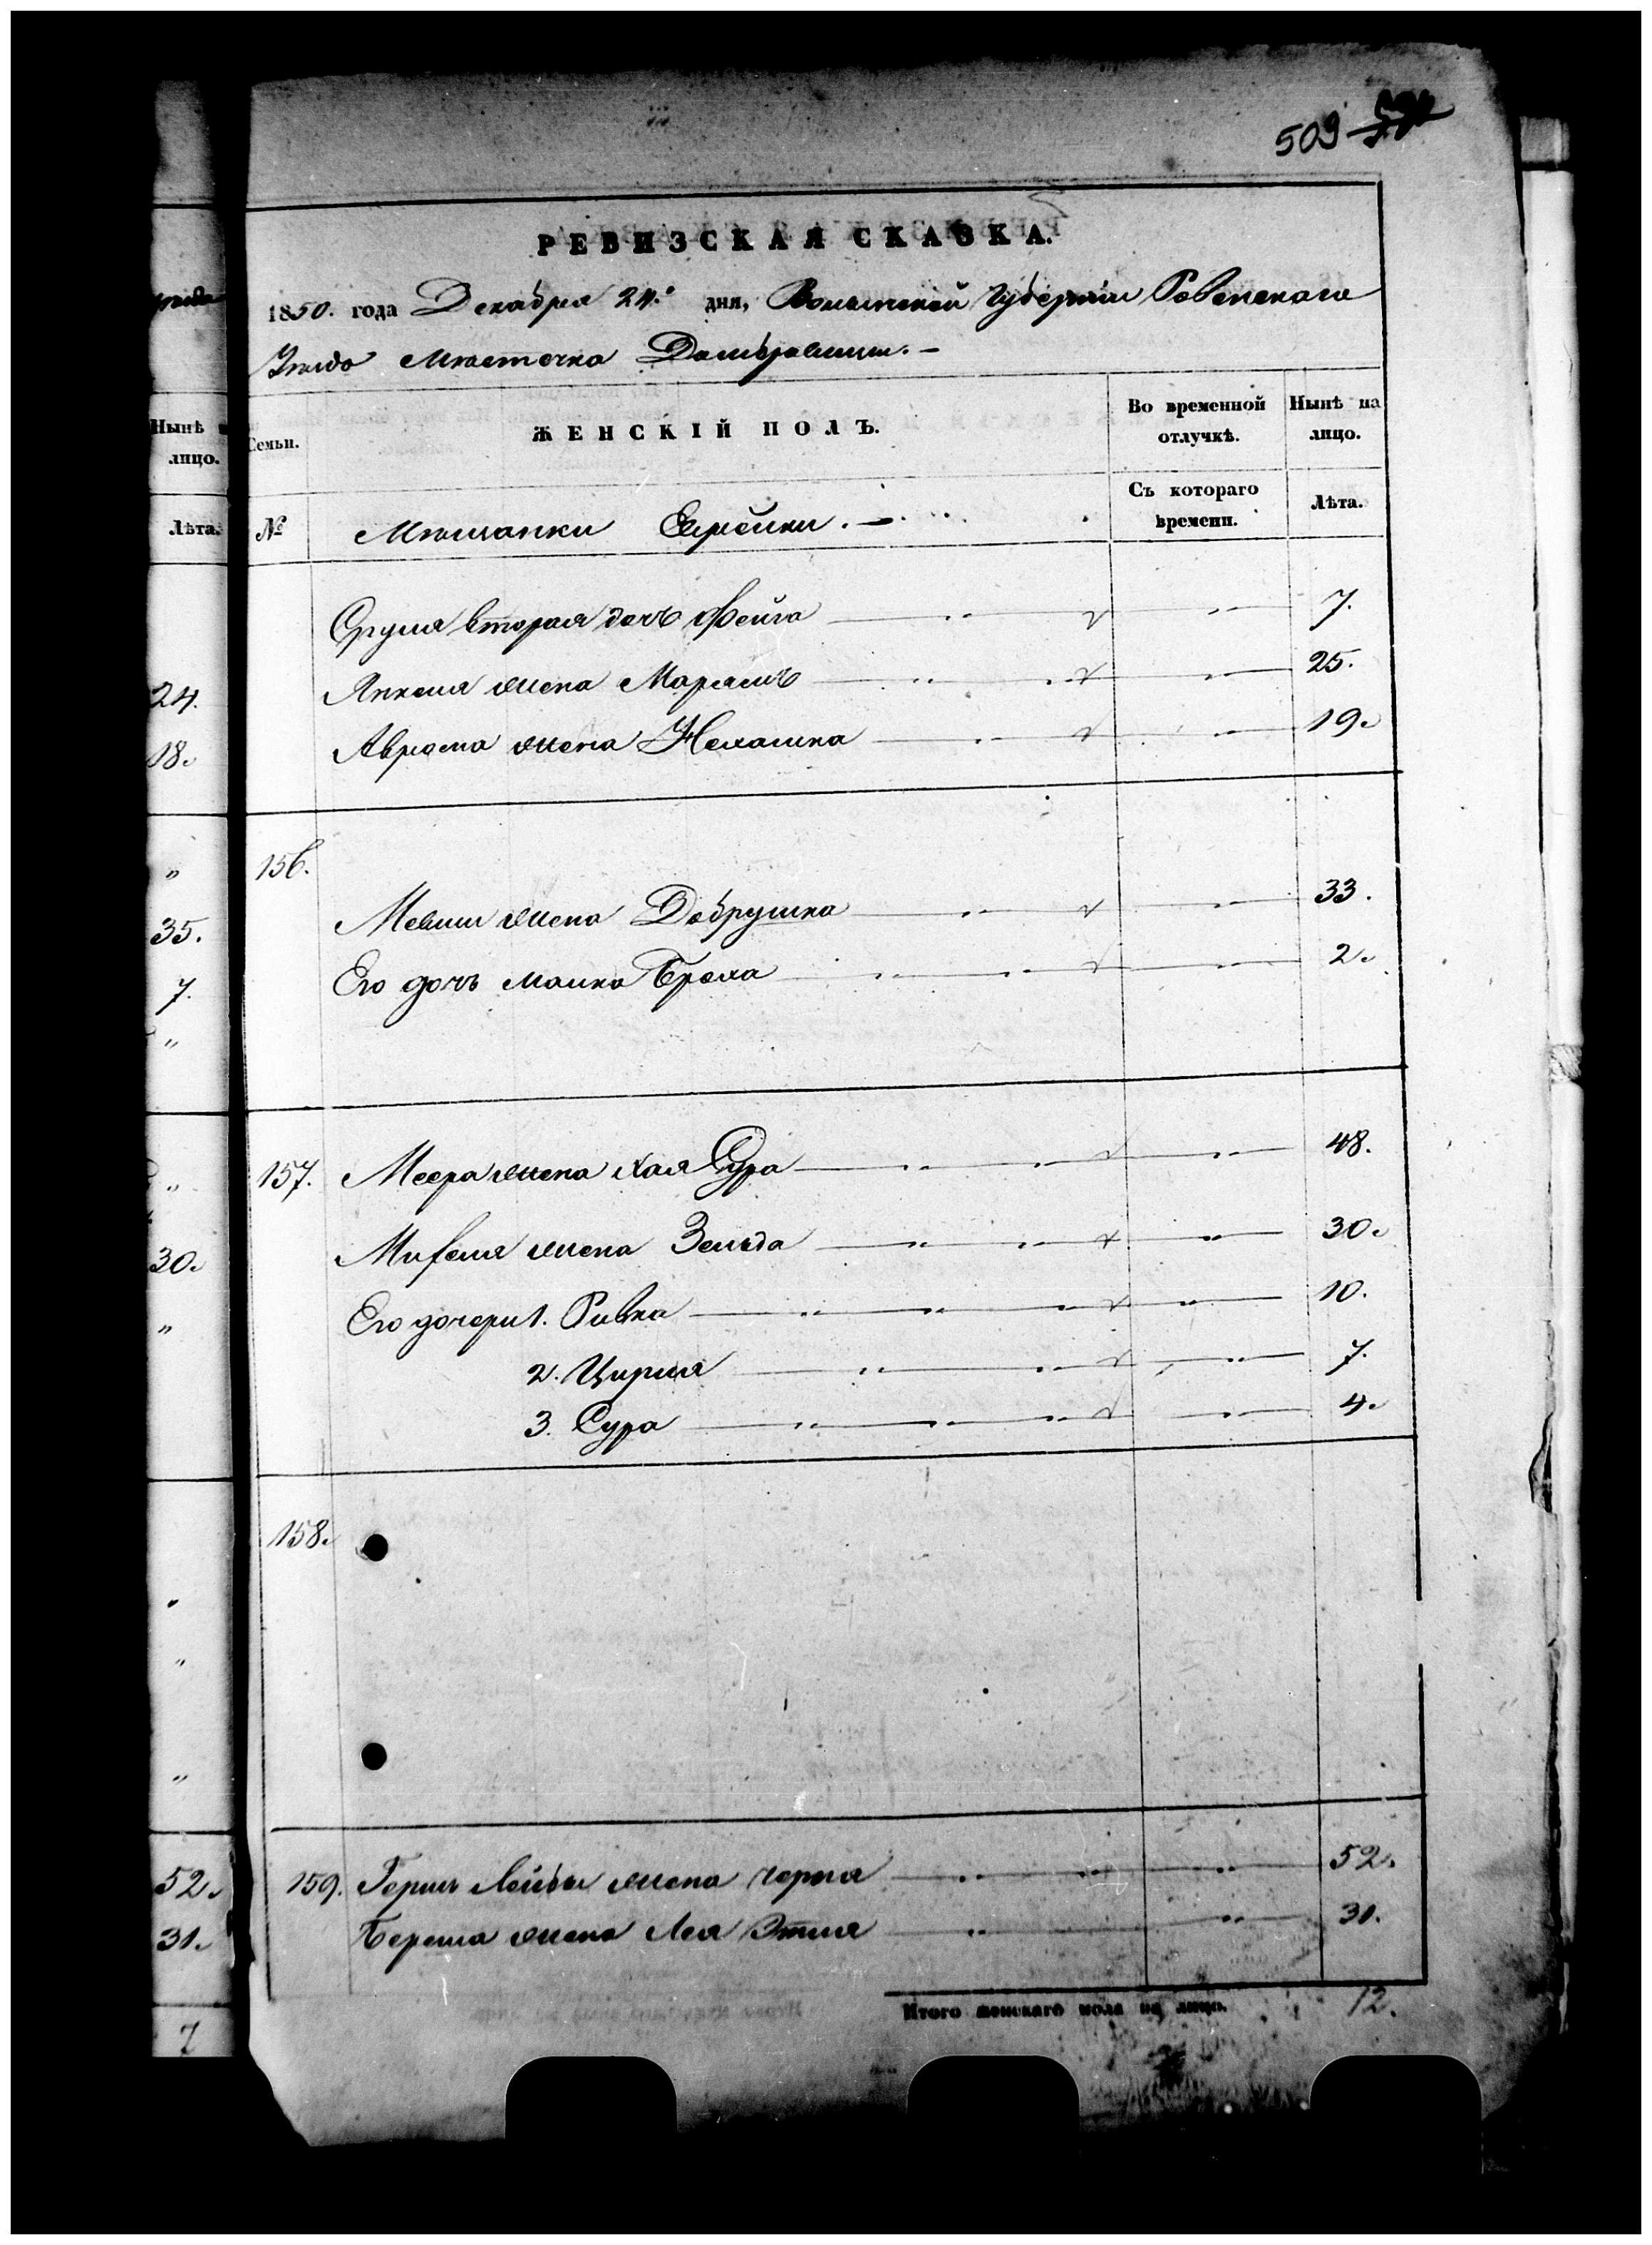 509
РЕВИЗСКАЯ СКАЗКА.
1850. года Декабря 24.° дня, Волынской Губерніи Ровенскаго
Уѣзда Мѣстечка Домбровицы. –
Семьи.
ЖЕНСКІЙ ПОЛЪ.
Во временной отлучкѣ.
Нынѣ на лицо.
№
Мѣщанки Еврейки. –
Съ котораго времени.
Лѣта.
Сруля вторая дочь Фейга " " 7.
Янкеля жена Марьямъ " " 25.
Аврама жена " " 19.
156.
Мевши жена Добрушка " " 33.
Его дочь Малка Броха " " 2.
157. Меера жена Хая Сура " " " 48.
жена Зельда " " " 30.
Его дочери 1. Ривка " " " " 10.
2. Цирля " " " 7.
3. Сура " " " " 4.
158.
159. Гершъ Лейбы жена Черня " " " 52.
Берка жена Лея Этля " " 31.
Итого женскаго пола на лицо. 12.
Нынѣ
лицо.
Лѣта.
24.
18.
"
35.
7.
"
"
30.
"
"
"
"
52.
31.
7